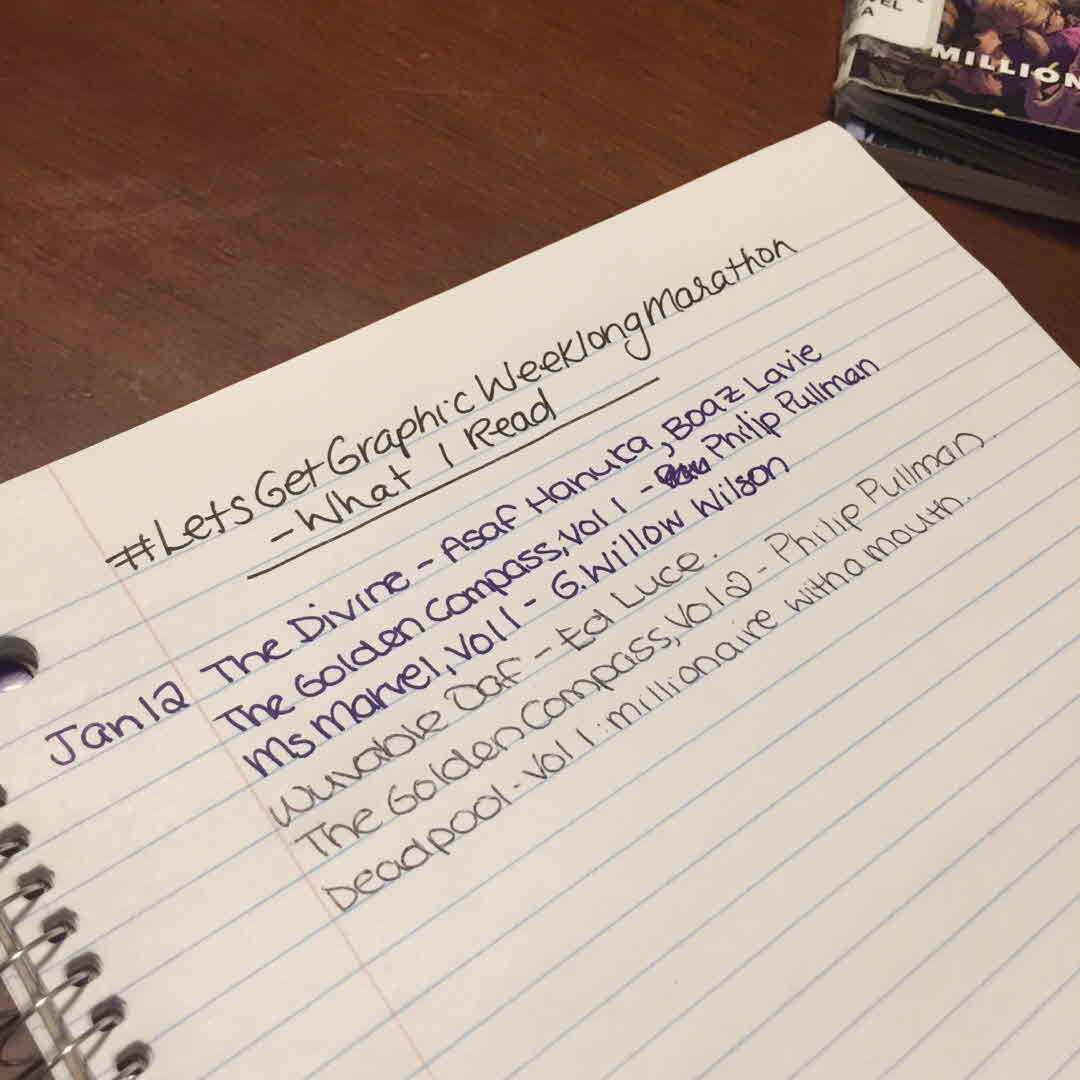 VEL
A
MILLION
#LetsGetGraphicWeeklongMarathon
-What I Read
Jan 12 The Divine - Asaf Hanuka, Boaz Lavie
The Golden Compass, Vol 1 - Philip Pullman
Ms Marvel, Vol 1 - G. Willow Wilson
Wuvable Oaf - Ed Luce.
The Golden Compass, Vol 2 - Philip Pullman.
Deadpool - Vol 1: millionaire with a mouth.